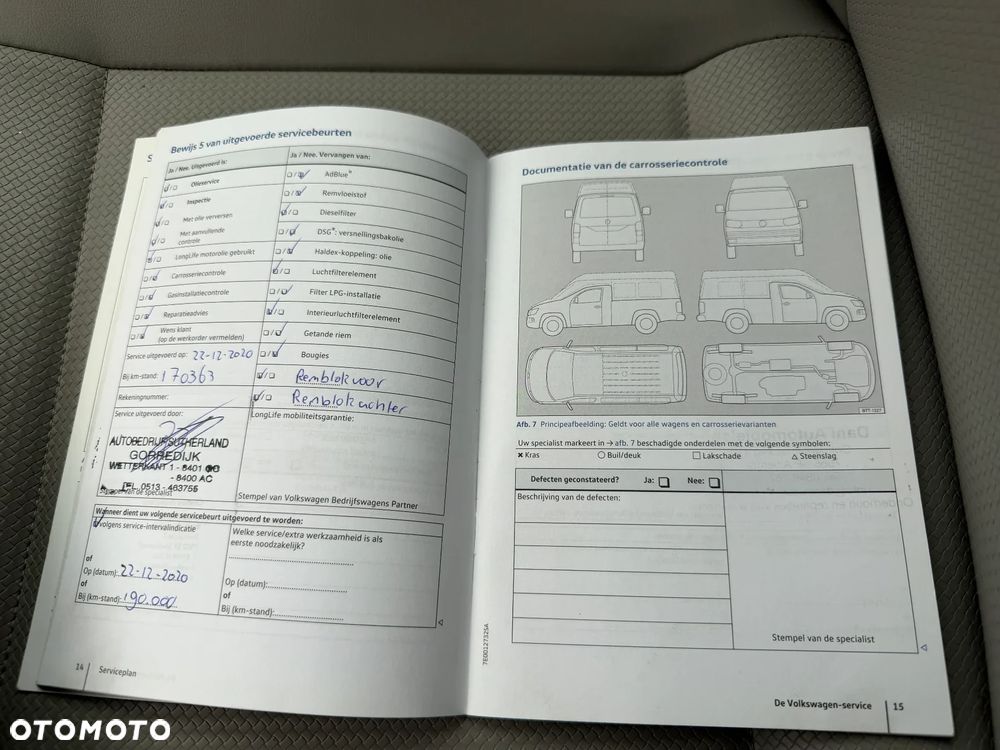 Bewijs 5 van uitgevoerde servicebeurten
Ja / Nee. Uitgevoerd is:
Olieservice
Inspectie
Met olie verversen
Met aanvullende
controle
LongLife motorolie gebruikt
Carrosseriecontrole
Gasinstallatiecontrole
Reparatieadvies
Wens klant
(op de werkorder vermelden)
Service uitgevoerd op: 22-12-2020
Bij km-stand: 170363
Rekeningnummer:
Service uitgevoerd door:
AUTOBEDRIJF SUTHERLAND
GORREDIJK
WETTERKANT 1 - 8401
- 8400 AC
TEL. 0513 - 463755
Stempel van de specialist
Ja / Nee. Vervangen van:
AdBlue®
Remvloeistof
Dieselfilter
DSG®: versnellingsbakolie
Haldex-koppeling: olie
Luchtfilterelement
Filter LPG-installatie
Interieurluchtfilterelement
Getande riem
Bougies
Remblok voor
Remblok achter
LongLife mobiliteitsgarantie:
Stempel van Volkswagen Bedrijfswagens Partner
Wanneer dient uw volgende servicebeurt uitgevoerd te worden:
volgens service-intervalindicatie
of
Op (datum): 22-12-2020
of
Bij (km-stand): 190.000
Welke service/extra werkzaamheid is als
eerste noodzakelijk?
Op (datum):
of
Bij (km-stand):
14 Serviceplan
Documentatie van de carrosseriecontrole
B7T-1327
Afb. 7 Principeafbeelding: Geldt voor alle wagens en carrosserievarianten
Uw specialist markeert in → afb. 7 beschadigde onderdelen met de volgende symbolen:
Kras Buil/deuk Lakschade Steenslag
Defecten geconstateerd? Ja: Nee:
Beschrijving van de defecten:
Stempel van de specialist
7E0012732SA
De Volkswagen-service 15
OTOMOTO